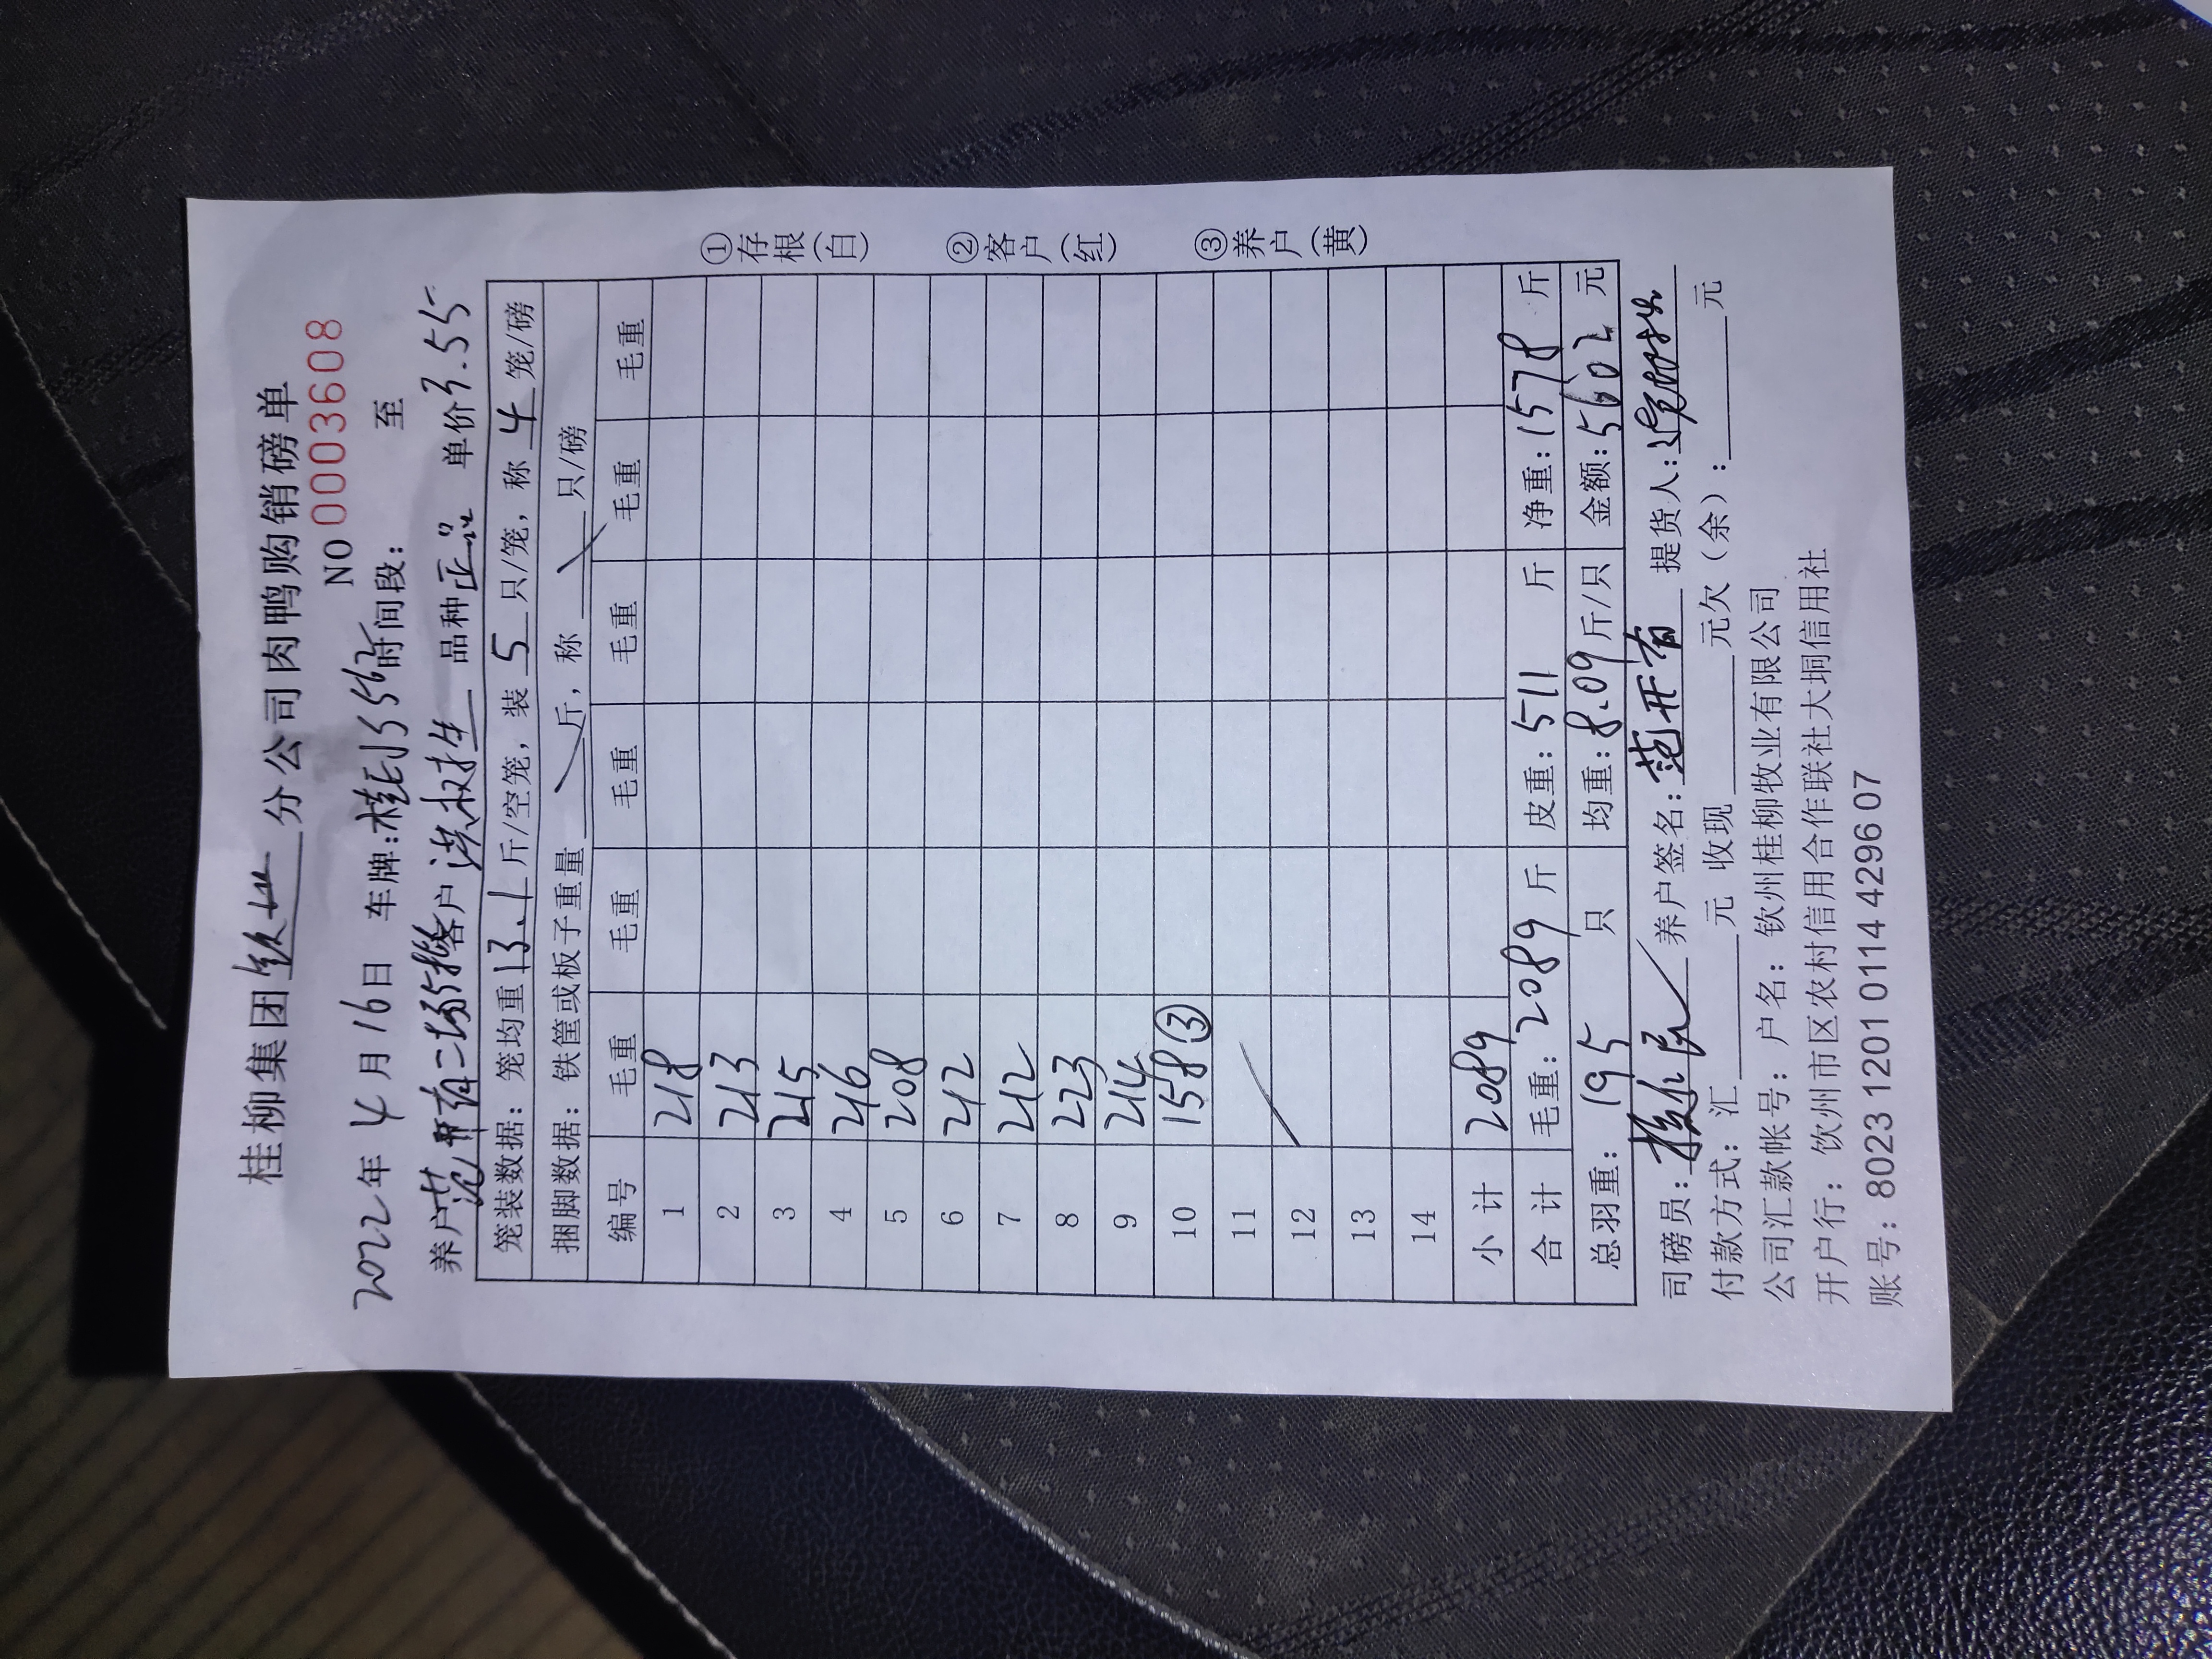 桂柳集团钦州分公司肉鸭购销磅单
NO 0003608
2022年4月16日 车牌:桂EJ5562时间段: 至
养户范开有二场 客户洪权生 品种正品 单价3.55
笼装数据:笼均重13.1斤/空笼,装5只/笼,称4笼/磅
捆脚数据:铁筐或板子重量 斤,称 只/磅
编号 毛重 毛重 毛重 毛重 毛重 毛重
1 218
2 213
3 215
4 216
5 208
6 212
7 212
8 223
9 214
10 158③
11
12
13
14
小计 2089
合计 毛重:2089斤 皮重:511斤 净重:1578斤
总羽重:195只 均重:8.09斤/只 金额:5602元
司磅员: 养户签名:范开有 提货人:
付款方式:汇 元 收现 元欠(余): 元
公司汇款帐号:户名:钦州桂柳牧业有限公司
开户行:饮州市区农村信用合作联社大垌信用社
账号:8023 1201 0114 4296 07
①存根(白)
②客户(红)
③养户(黄)